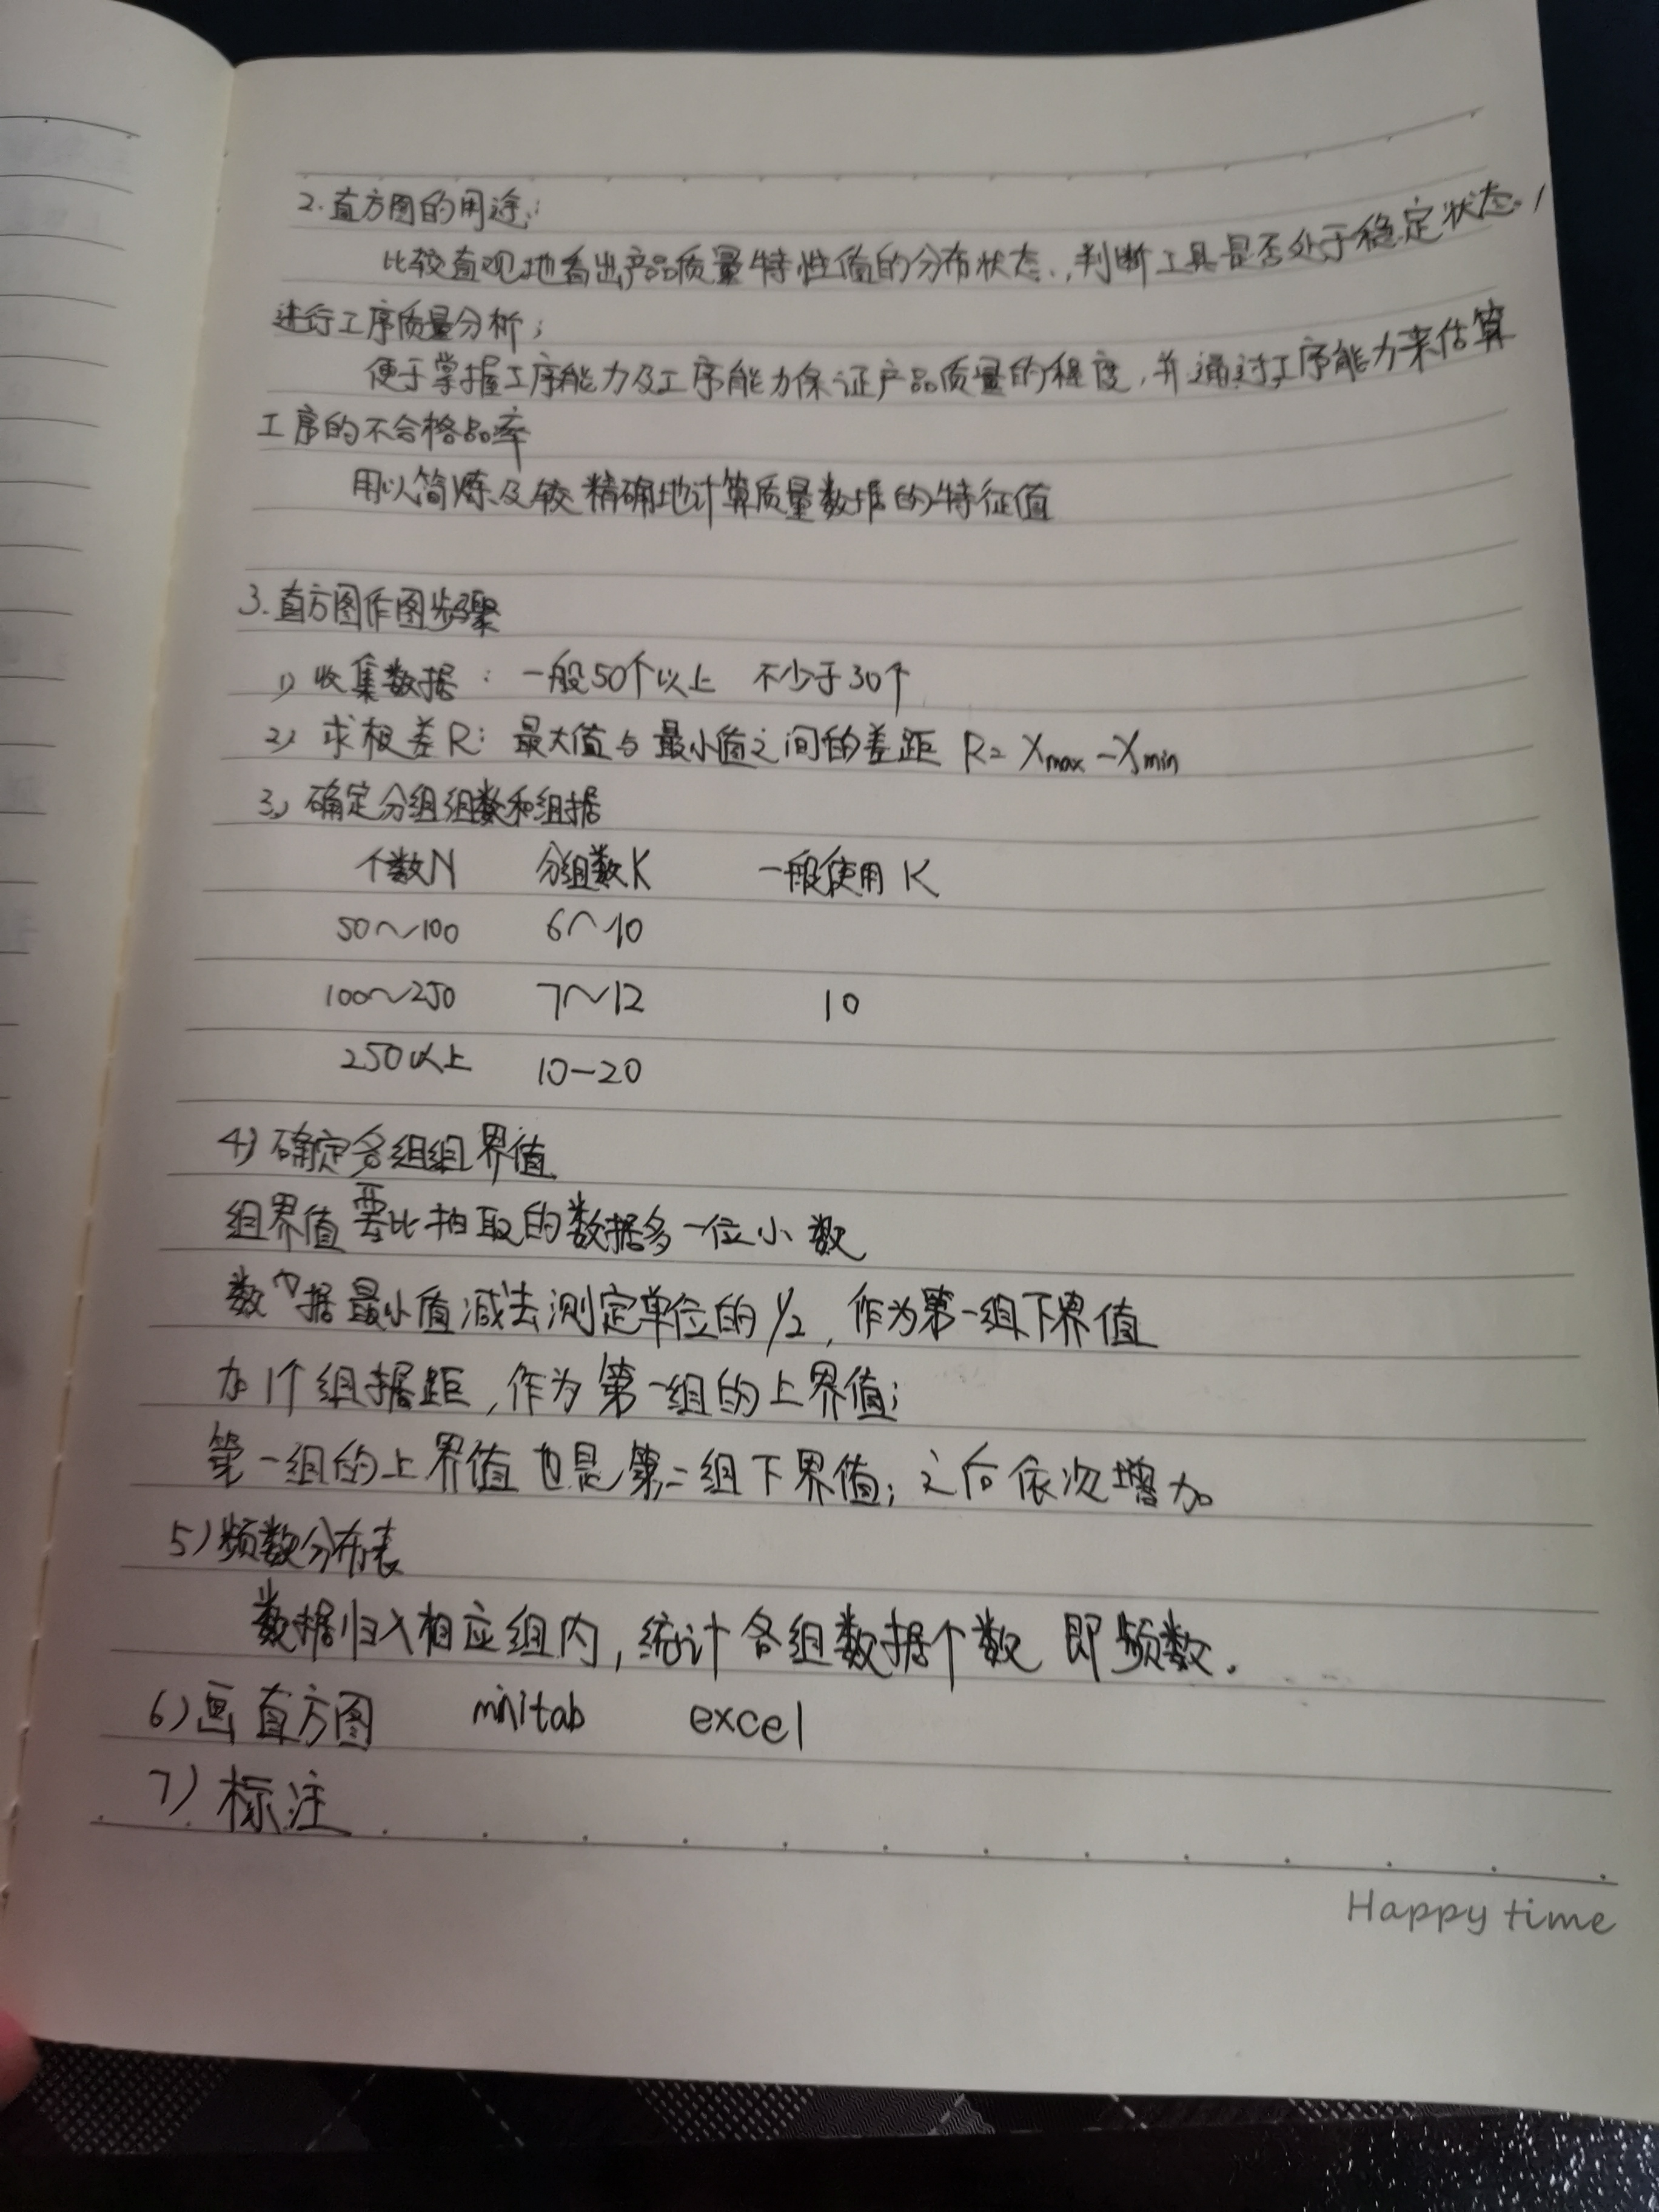 2.直方图的用途:
比较直观地看出产品质量特性值的分布状态,判断工具是否处于稳定状态,
进行工序质量分析;
便于掌握工序能力及工序能力保证产品质量的程度,并通过工序能力来估算
工序的不合格品率
用以简炼及较精确地计算质量数据的特征值
3.直方图作图步骤
1) 收集数据: 一般50个以上 不少于30个
2) 求极差R: 最大值与最小值之间的差距 R=Xmax-Xmin
3) 确定分组组数和组据
个数N 分组数K 一般使用K
50~100 6~10
100~250 7~12 10
250以上 10-20
4) 确定各组组界值
组界值要比抽取的数据多一位小数
数据最小值减去测定单位的1/2,作为第一组下界值
加1个组据距,作为第一组的上界值;
第一组的上界值也是第二组下界值;之后依次增加
5) 频数分布表
数据归入相应组内,统计各组数据个数 即频数.
6) 画直方图 minitab excel
7) 标注
Happy time